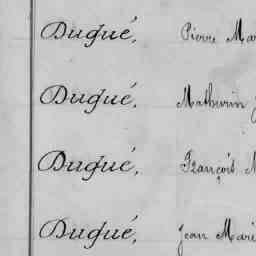 Dugué, Pierre Mar
Dugué, Mathurin J
Dugué, François M
Dugué, Jean Marie